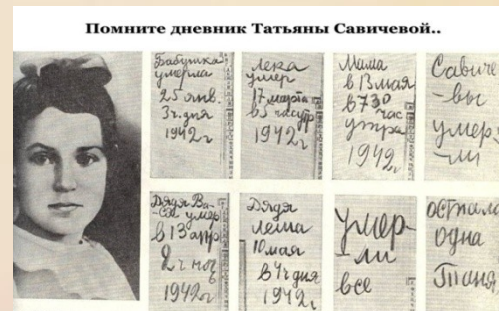 Помните дневник Татьяны Савичевой..
Бабушка
умерла
25 янв.
3ч. дня
1942г
Лека
умер
17 марта
в 5 час утр
1942г
Мама
в 13 мая
в 730
час
утра
1942г
Савиче
-вы
умер-
-ли
Дядя Ва-
-ся умер
в 13 апр
2ч ноч
1942г
Дядя
Леша
10 мая
в 4ч дня
1942г
Умер-
ли
все
Остала
одна
Таня